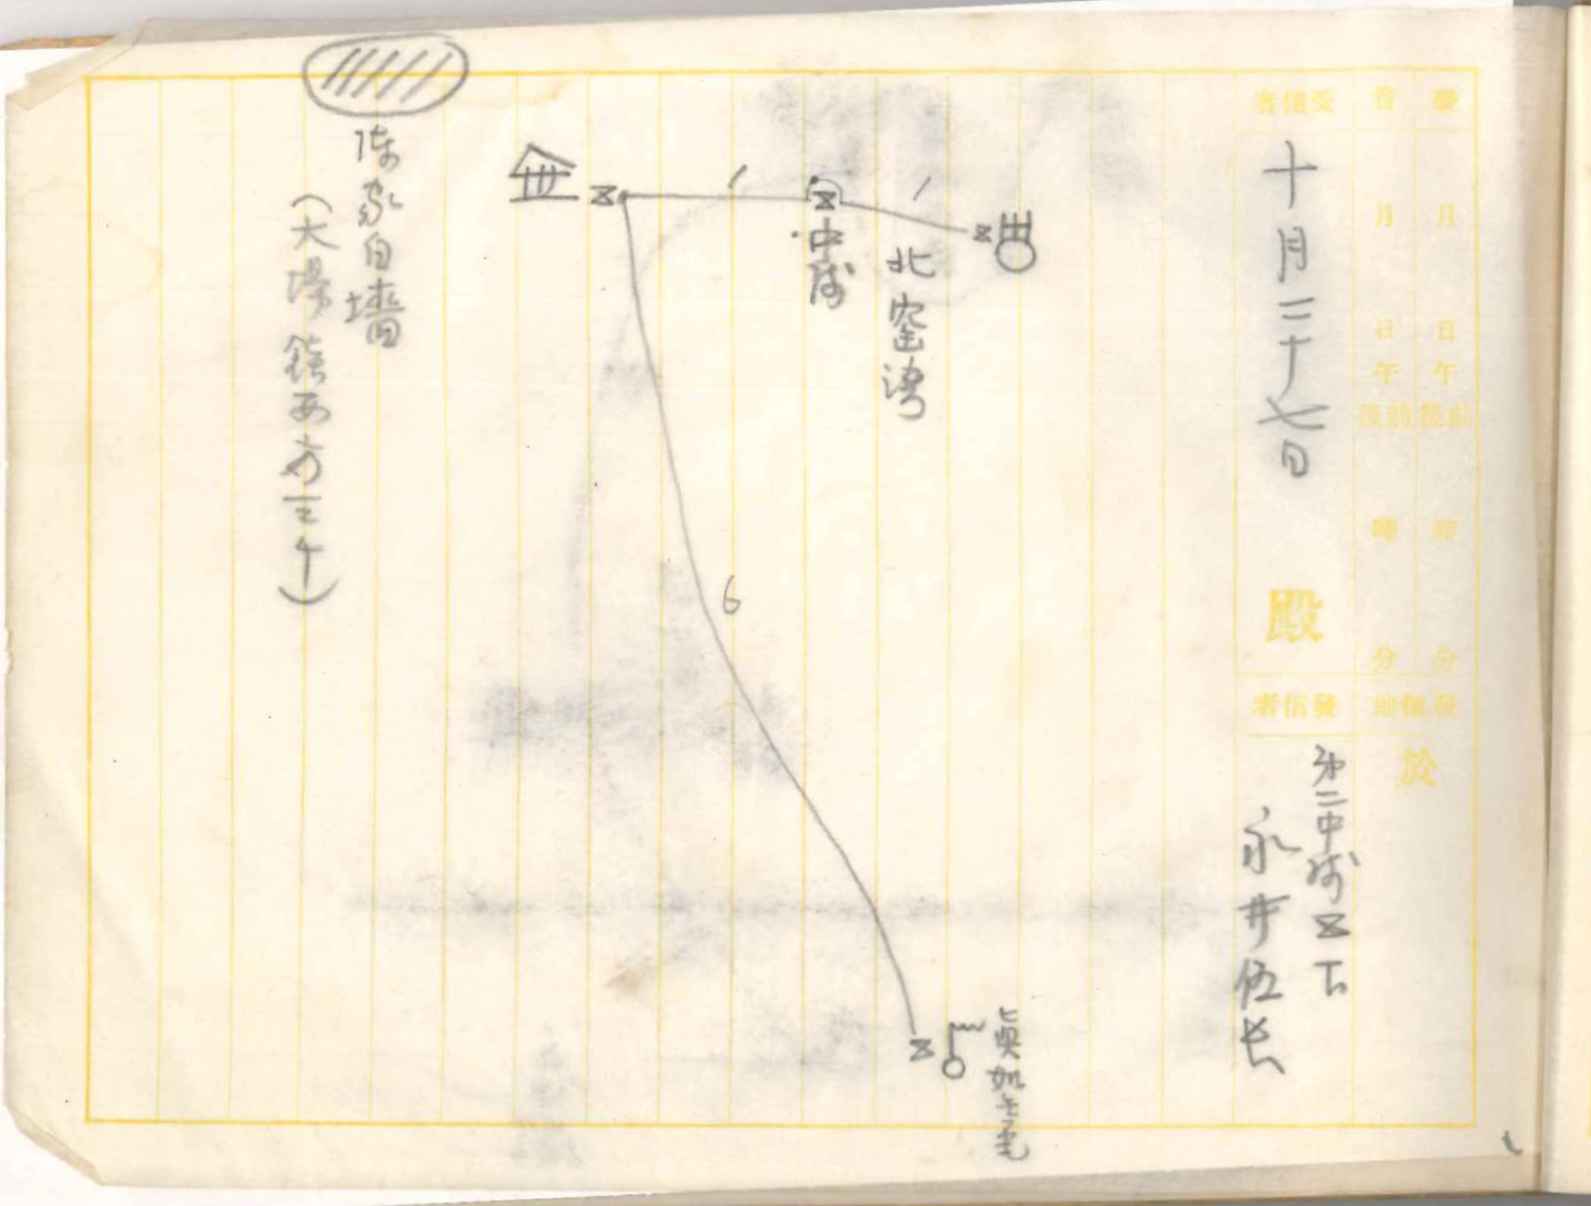 受信者
着
發
月 日 午 前後 時 分
月 日 午 前後 時 分
十月二十七日
殿
發信者
發信地
於
第二中隊
永井伍長
北窑湾
中隊
1
1
6
眞如
陳家白墻
(大場鎮西方三千)